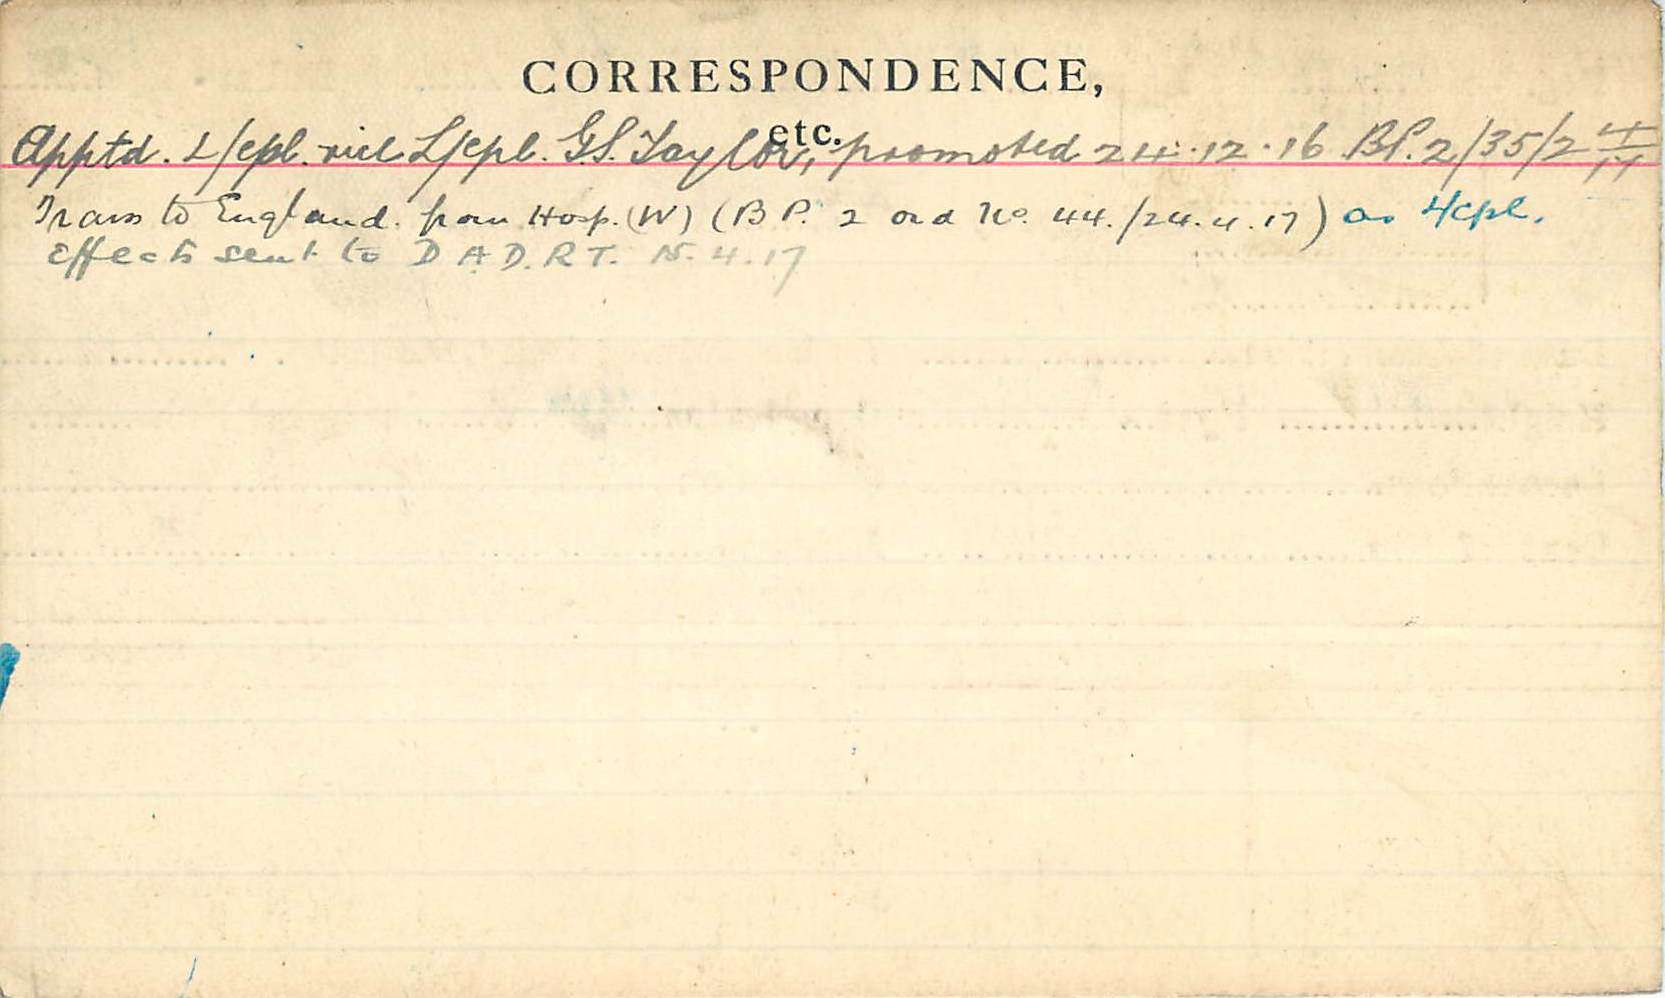 CORRESPONDENCE,
etc.
Apptd. L/cpl. vice L/cpl. G.S. Taylor, promoted 24.12.16 BP. 2/35/2 4/17
Trans to England. from Hosp. (W) (B P. 2 ord No. 44./24.4.17) as L/cpl.
Effects sent to D A D. R T. 15.4.17